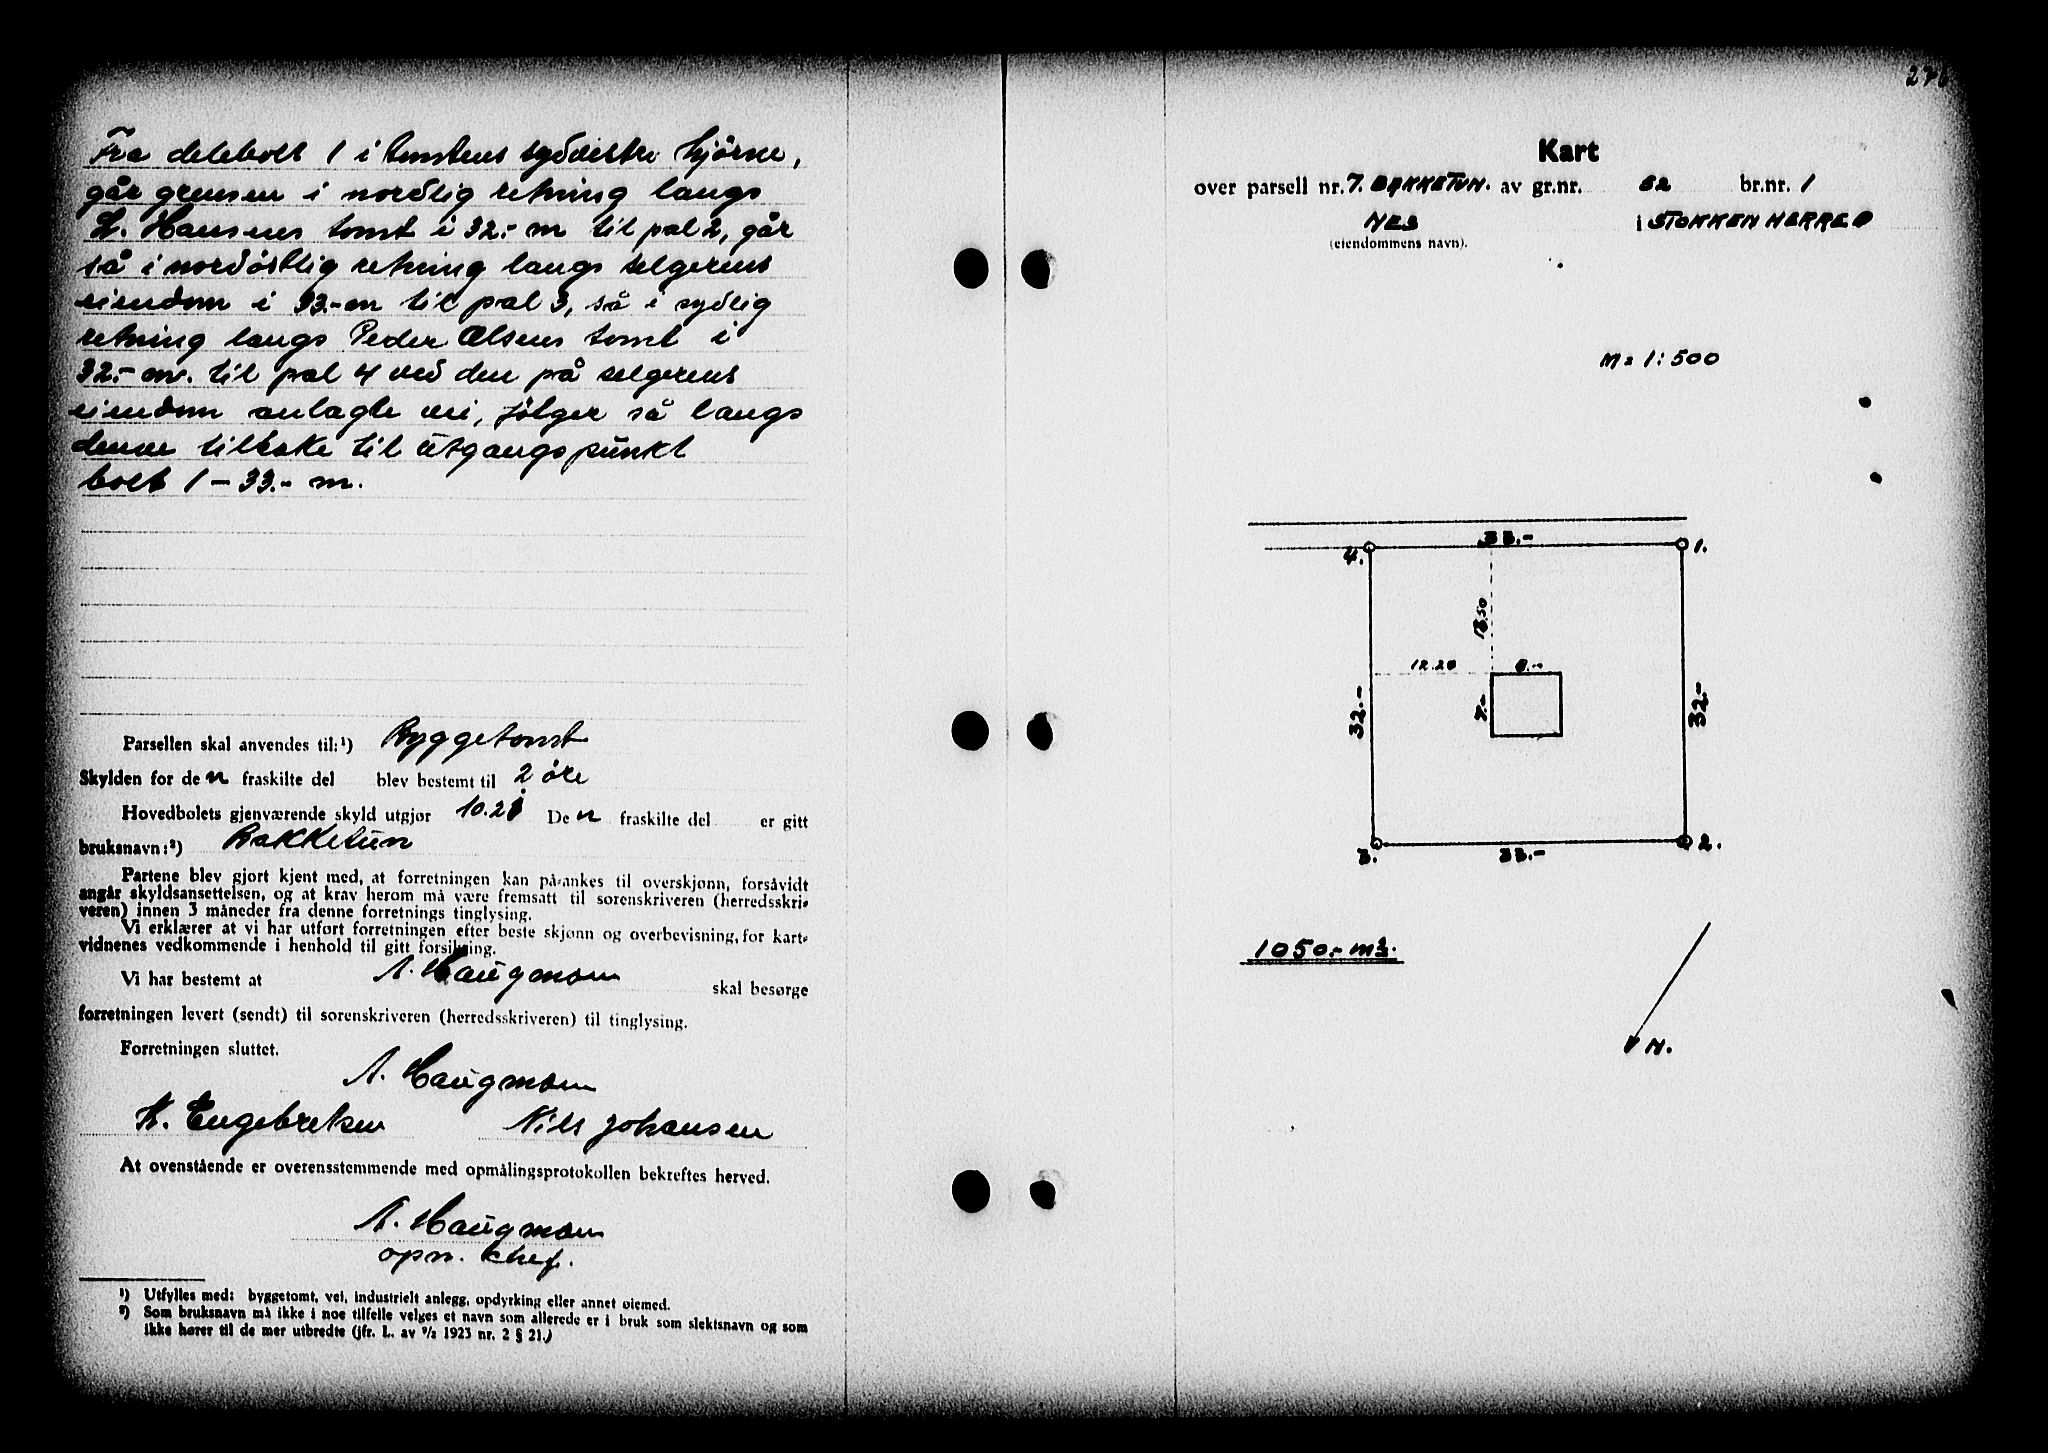 Fra delebolt 1 i tomtens sydvestre hjörne,
går grensen i nordlig retning langs
H. Hansens tomt i 32.- m til pal 2, går
så i nordöstlig retning langs selgerens
eiendom i 33.- m til pal 3, så i sydlig
retning langs Peder Olsens tomt i
32.- m. til pal 4 ved den på selgerens
eiendom anlagte vei, fölger så langs
denne tilbake til utgangspunkt
bolt 1 - 33.- m.
Parsellen skal anvendes til:¹) Byggetomt
Skylden for den fraskilte del blev bestemt til 2 öre
Hovedbølets gjenværende skyld utgjør 10.21 Den fraskilte del er gitt
bruksnavn:²) Bakketun
Partene blev gjort kjent med, at forretningen kan på-ankes til overskjønn, forsåvidt
angår skyldsansettelsen, og at krav herom må være fremsatt til sorenskriveren (herredsskri-
veren) innen 3 måneder fra denne forretnings tinglysing.
Vi erklærer at vi har utført forretningen efter beste skjønn og overbevisning, for kart-
vidnenes vedkommende i henhold til gitt forsikring.
Vi har bestemt at A. Haugmoen skal besørge
forretningen levert (sendt) til sorenskriveren (herredsskriveren) til tinglysing.
Forretningen sluttet.
A. Haugmoen
K. Engebretsen Nils Johansen
At ovenstående er overensstemmende med opmålingsprotokollen bekreftes herved.
A. Haugmoen
opm. chef.
¹) Utfylles med: byggetomt, vei, industrielt anlegg, opdyrking eller annet øiemed.
²) Som bruksnavn må ikke i noe tilfelle velges et navn som allerede er i bruk som slektsnavn og som
ikke hører til de mer utbredte (jfr. L. av ⁹/₂ 1923 nr. 2 § 21.)
Kart
over parsell nr. 7. BAKKETUN. av gr.nr. 52 br.nr. 1
NES i STOKKEN HERRED
(eiendommens navn).
M = 1:500
33.-
4. 1.
13.50
12.20 8.-
32.- 7.- 32.-
3. 33.- 2.
1050.- m2.
N.